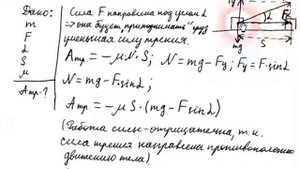 Дано:
m
F
α
S
μ
Aтр-?
Сила F направлена под углом α
=> она будет „приподнимать" груз
уменьшая силу трения.
Aтр = -μ·N·S; N = mg - Fy; Fy = F·sinα
N = mg - F·sinα;
Aтр = -μS·(mg - F·sinα)
(Работа силы - отрицательна, т.к.
сила трения направлена противоположно
движению тела)
α
mg
S